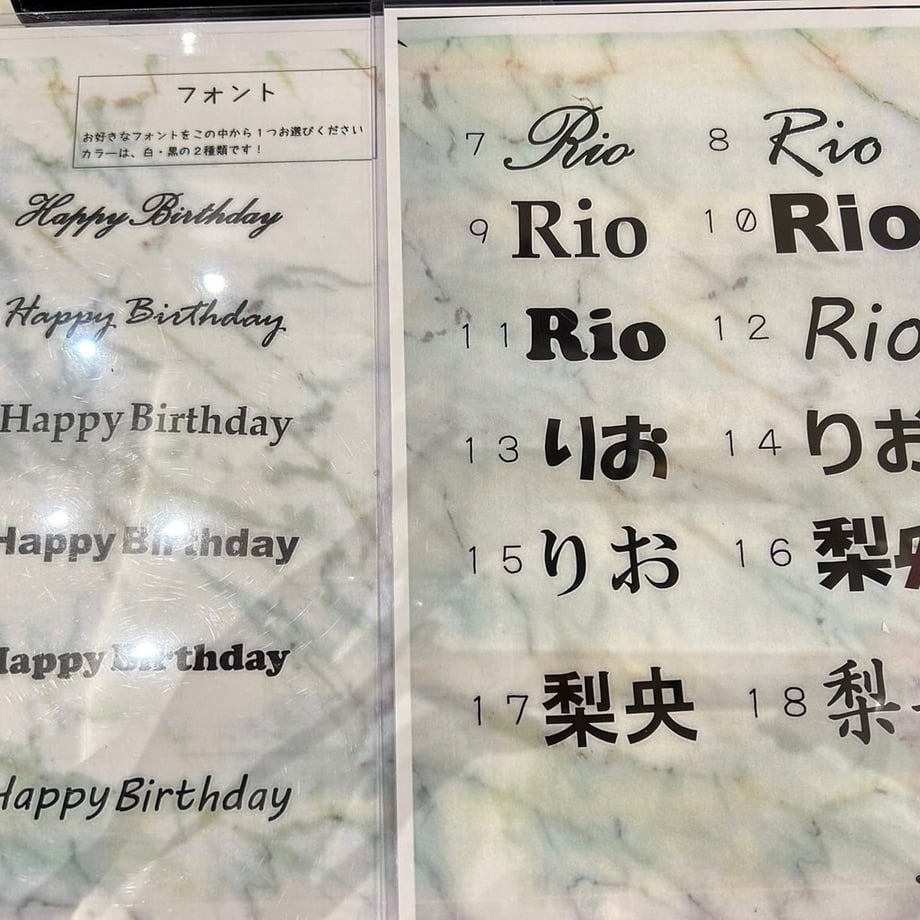 フォント
お好きなフォントをこの中から1つお選びください
カラーは、白・黒の2種類です!
Happy Birthday
Happy Birthday
Happy Birthday
Happy Birthday
Happy Birthday
Happy Birthday
7 Rio 8 Rio
9 Rio 10 Rio
11 Rio 12 Rio
13 りお 14 りお
15 りお 16 梨央
17 梨央 18 梨